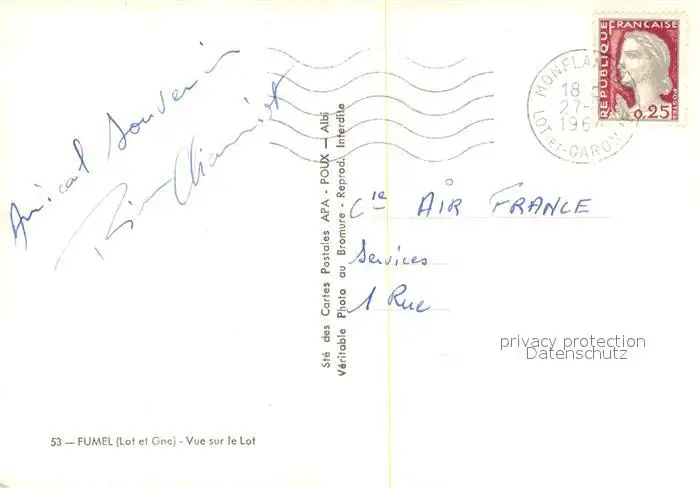 Amical souvenir
Sté des Cartes Postales APA - POUX — Albi
Véritable Photo au Bromure - Reprod. Interdite
RÉPUBLIQUE FRANÇAISE
POSTES
0,25
18
27
196
LOT-ET-GARONNE
Cie AIR FRANCE
Services
1 Rue
privacy protection
Datenschutz
53 — FUMEL (Lot et Gne) - Vue sur le Lot